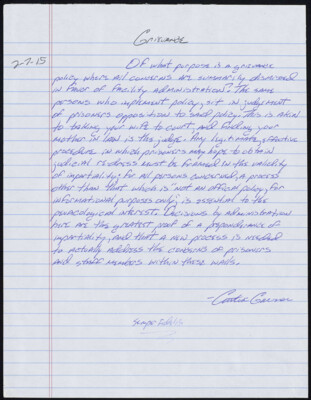 Grievance
2-7-15
Of what purpose is a grievance
policy where all concerns are summarily dismissed
in favor of facility administration? The same
persons who impliment policy, sit in judgement
of prisoners opposition to said policy. This is akin
to taking your wife to court, and finding your
mother in law is the judge. Any legitimate, effective
procedure in which prisoners may hope to obtain
judicial redress must be formed in the validity
of impartiality; for all persons concerned, a process
other than that which is "not an official policy, for
informational purposes only," is essential to the
penological interest. Decisions by administration
here are the greatest proof of a preponderance of
impartiality, and that a new process is needed
to actually address the concerns of prisoners
and staff members within these walls.
Semper Fidelis